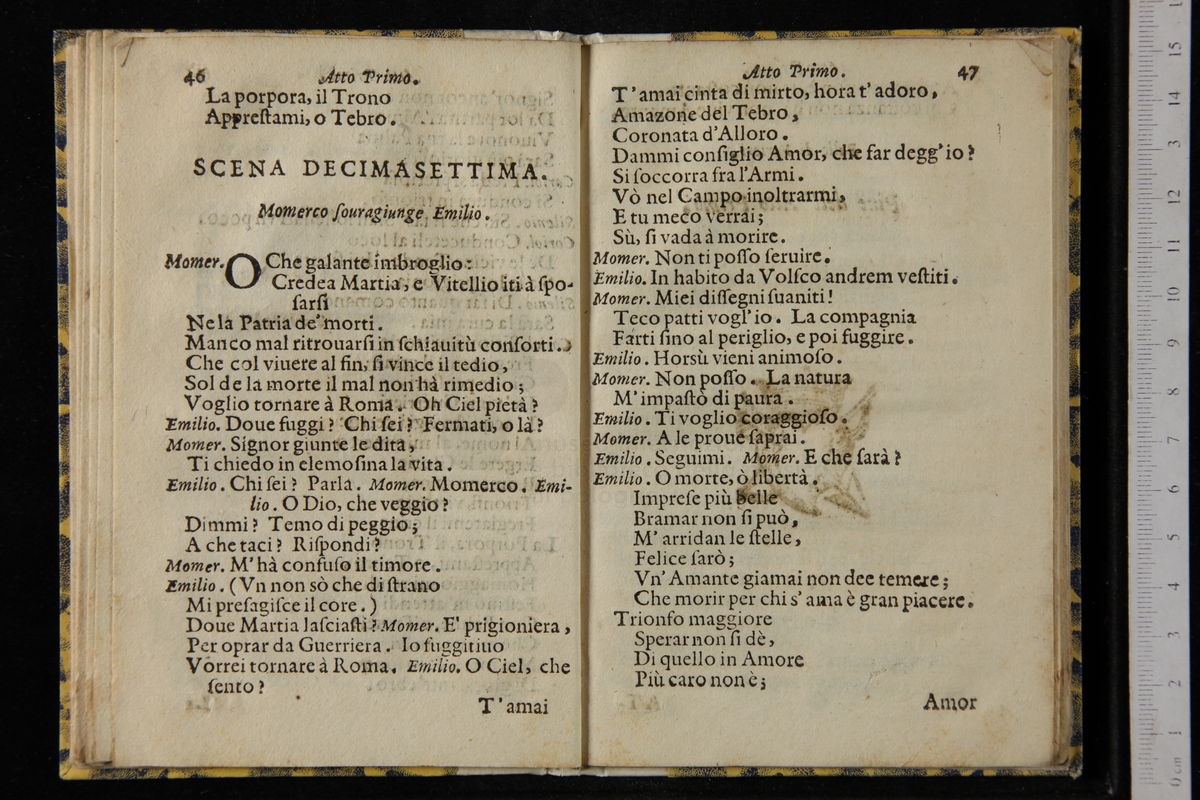 46 Atto Primo.
La porpora, il Trono
Appreſtami, o Tebro.
SCENA DECIMASETTIMA.
Momerco ſouragiunge Emilio.
Momer. O Che galante imbroglio:
Credea Martia, e Vitellio iti à ſpo-
ſarſi
Ne la Patria de' morti.
Manco mal ritrouarſi in ſchiauitù conſorti.
Che col viuere al fin, ſi vince il tedio,
Sol de la morte il mal non hà rimedio;
Voglio tornare à Roma. Oh Ciel pietà?
Emilio. Doue fuggi? Chi ſei? Fermati, o là?
Momer. Signor giunte le dita,
Ti chiedo in elemoſina la vita.
Emilio. Chi ſei? Parla. Momer. Momerco. Emi-
lio. O Dio, che veggio?
Dimmi? Temo di peggio;
A che taci? Riſpondi?
Momer. M'hà confuſo il timore.
Emilio. (Vn non sò che di ſtrano
Mi preſagiſce il core.)
Doue Martia laſciaſti? Momer. E' prigioniera,
Per oprar da Guerriera. Io fuggitiuo
Vorrei tornare à Roma. Emilio. O Ciel, che
ſento?
T'amai
Atto Primo. 47
T'amai cinta di mirto, hora t'adoro,
Amazone del Tebro,
Coronata d'Alloro.
Dammi conſiglio Amor, che far degg'io?
Si ſoccorra fra l'Armi.
Vò nel Campo inoltrarmi,
E tu meco verrai;
Sù, ſi vada à morire.
Momer. Non ti poſſo ſeruire.
Emilio. In habito da Volſco andrem veſtiti.
Momer. Miei diſſegni ſuaniti!
Teco patti vogl'io. La compagnia
Farti ſino al periglio, e poi fuggire.
Emilio. Horsù vieni animoſo.
Momer. Non poſſo. La natura
M'impaſtò di paura.
Emilio. Ti voglio coraggioſo.
Momer. A le proue ſaprai.
Emilio. Seguimi. Momer. E che ſarà?
Emilio. O morte, ò libertà.
Impreſe più belle
Bramar non ſi può,
M'arridan le ſtelle,
Felice ſarò;
Vn'Amante giamai non dee temere;
Che morir per chi s'ama è gran piacere.
Trionfo maggiore
Sperar non ſi dè,
Di quello in Amore
Più caro non è;
Amor
0 cm 1 2 3 4 5 6 7 8 9 10 11 12 3 14 15